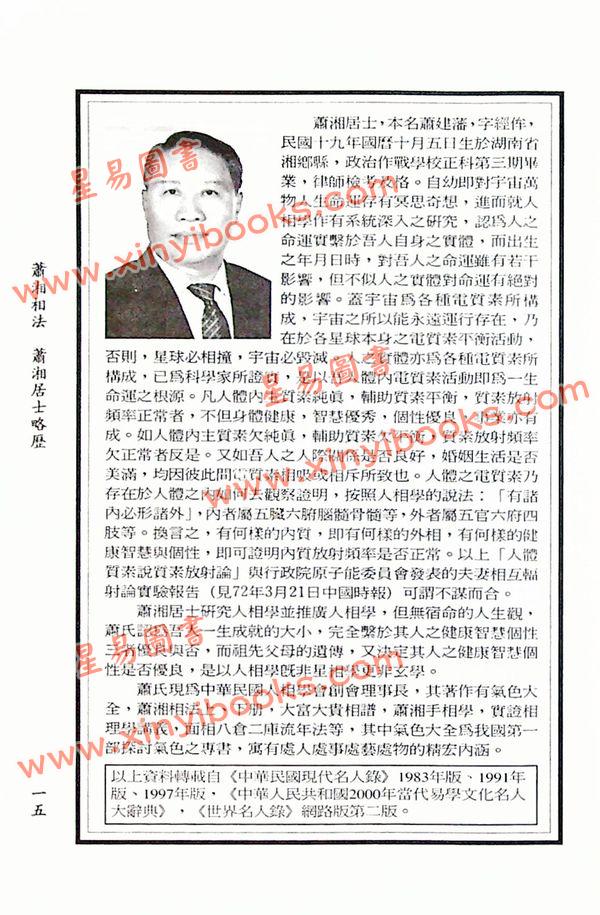 蕭湘居士，本名蕭建藩，字經侔，
民國十九年國曆十月五日生於湖南省
湘鄉縣，政治作戰學校正科第三期畢
業，律師檢考及格。自幼即對宇宙萬
物人生命運存有冥思奇想，進而就人
相學作有系統深入之研究，認爲人之
命運實繫於吾人自身之實體，而出生
之年月日時，對吾人之命運雖有若干
影響，但不似人之實體對命運有絕對
的影響。蓋宇宙爲各種電質素所構
成，宇宙之所以能永遠運行存在，乃
在於各星球本身之電質素平衡活動，
否則，星球必相撞，宇宙必毀滅。人之實體亦爲各種電質素所
構成，已爲科學家所證實，是以吾人體內電質素活動即爲一生
命運之根源。凡人體內主質素純眞，輔助質素平衡，質素放射
頻率正常者，不但身體健康，智慧優秀，個性優良，事業亦有
成。如人體內主質素欠純眞，輔助質素欠平衡，質素放射頻率
欠正常者反是。又如吾人之人際關係是否良好，婚姻生活是否
美滿，均因彼此間電質素相吸或相斥所致也。人體之電質素乃
存在於人體之內如何去觀察證明，按照人相學的說法：「有諸
內必形諸外」，內者屬五臟六腑腦髓骨髓等，外者屬五官六府四
肢等。換言之，有何樣的內質，即有何樣的外相，有何樣的健
康智慧與個性，即可證明內質放射頻率是否正常。以上「人體
質素說質素放射論」與行政院原子能委員會發表的夫妻相互輻
射論實驗報告（見72年3月21日中國時報）可謂不謀而合。
蕭湘居士研究人相學並推廣人相學，但無宿命的人生觀，
蕭氏認爲吾人一生成就的大小，完全繫於其人之健康智慧個性
三者優良與否，而祖先父母的遺傳，又決定其人之健康智慧個
性是否優良，是以人相學旣非星相學更非玄學。
蕭氏現爲中華民國人相學會創會理事長，其著作有氣色大
全，蕭湘相法上、下册，大富大貴相譜，蕭湘手相學，實證相
理學講義，面相八倉二庫流年法等，其中氣色大全爲我國第一
部探討氣色之專書，寓有處人處事處藝處物的精宏內涵。
以上資料轉載自《中華民國現代名人錄》1983年版、1991年
版、1997年版，《中華人民共和國2000年當代易學文化名人
大辭典》，《世界名人錄》網路版第二版。
蕭湘相法　蕭湘居士略歷
一五
星易圖書
www.xinyibooks.com
星易圖書
www.xinyibooks.com
星易圖書
www.xinyibooks.com